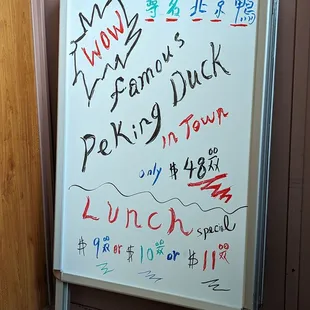 尊名北京鸭
WOW
Famous
Peking Duck
in Town
only $48.00
Lunch special
$9.00 or $10.00 or $11.00